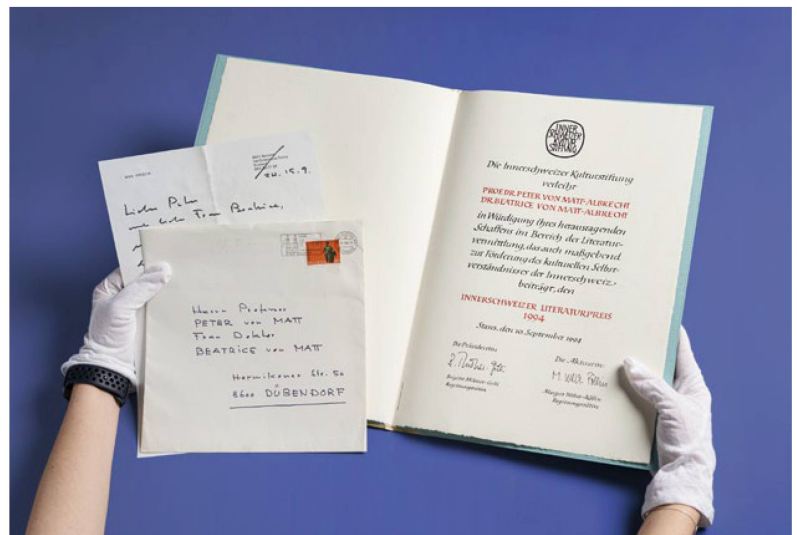 MAX FRISCH
ZH. 15.9.
Lieber Peter
und liebe Frau Beatrice,
Herrn Professor
PETER von MATT
Frau Doktor
BEATRICE von MATT
Hermikoner Str. 50
8600 DÜBENDORF
INNER
SCHWEIZER
KULTUR
STIFTUNG
Die Innerschweizer Kulturstiftung
verleiht
PROF. DR. PETER VON MATT-ALBRECHT
DR. BEATRICE VON MATT-ALBRECHT
in Würdigung ihres herausragenden
Schaffens im Bereich der Literatur-
vermittlung, das auch maßgebend
zur Förderung des kulturellen Selbst-
verständnisses der Innerschweiz
beiträgt, den
INNERSCHWEIZER LITERATURPREIS
1994
Stans, den 10. September 1994
Die Präsidentin:
Brigitte Mürner-Gilli
Regierungsrätin
Die Aktuarin:
Margrit Weber-Röllin
Regierungsrätin